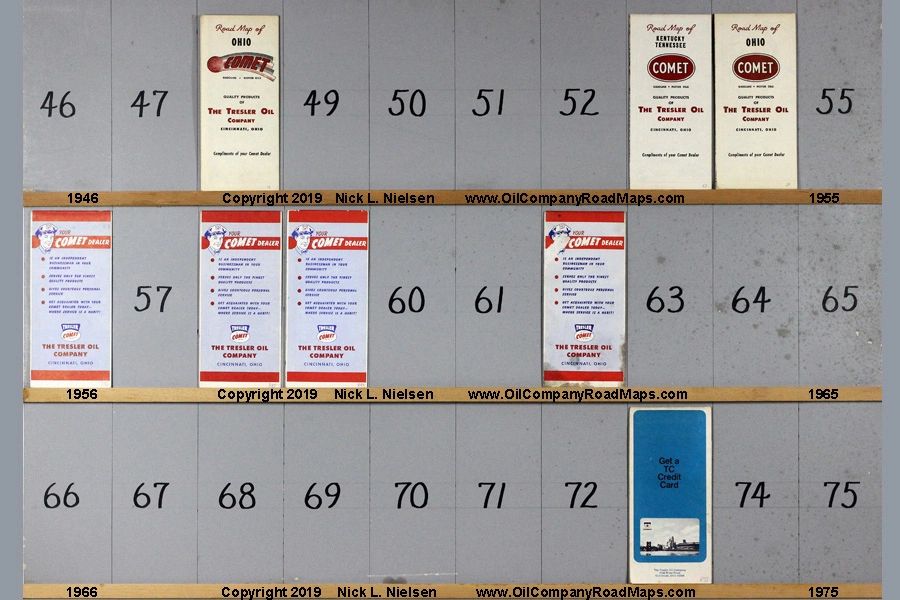 46
47
Road Map of
OHIO
COMET
GASOLINE • MOTOR OILS
QUALITY PRODUCTS
OF
THE TRESLER OIL
COMPANY
CINCINNATI, OHIO
Compliments of your Comet Dealer
49
50
51
52
Road Map of
KENTUCKY
TENNESSEE
COMET
GASOLINE • MOTOR OILS
QUALITY PRODUCTS
OF
THE TRESLER OIL
COMPANY
CINCINNATI, OHIO
Compliments of your Comet Dealer
Road Map of
OHIO
COMET
GASOLINE • MOTOR OILS
QUALITY PRODUCTS
OF
THE TRESLER OIL
COMPANY
CINCINNATI, OHIO
Compliments of your Comet Dealer
55
1946 Copyright 2019 Nick L. Nielsen www.OilCompanyRoadMaps.com 1955
YOUR
COMET DEALER
IS AN INDEPENDENT
BUSINESSMAN IN YOUR
COMMUNITY
SERVES ONLY THE FINEST
QUALITY PRODUCTS
GIVES COURTEOUS PERSONAL
SERVICE
GET ACQUAINTED WITH YOUR
COMET DEALER TODAY—
WHERE SERVICE IS A HABIT!
TRESLER
COMET
THE TRESLER OIL
COMPANY
CINCINNATI, OHIO
57
YOUR
COMET DEALER
IS AN INDEPENDENT
BUSINESSMAN IN YOUR
COMMUNITY
SERVES ONLY THE FINEST
QUALITY PRODUCTS
GIVES COURTEOUS PERSONAL
SERVICE
GET ACQUAINTED WITH YOUR
COMET DEALER TODAY—
WHERE SERVICE IS A HABIT!
TRESLER
COMET
THE TRESLER OIL
COMPANY
CINCINNATI, OHIO
YOUR
COMET DEALER
IS AN INDEPENDENT
BUSINESSMAN IN YOUR
COMMUNITY
SERVES ONLY THE FINEST
QUALITY PRODUCTS
GIVES COURTEOUS PERSONAL
SERVICE
GET ACQUAINTED WITH YOUR
COMET DEALER TODAY—
WHERE SERVICE IS A HABIT!
TRESLER
COMET
THE TRESLER OIL
COMPANY
CINCINNATI, OHIO
60
61
YOUR
COMET DEALER
IS AN INDEPENDENT
BUSINESSMAN IN YOUR
COMMUNITY
SERVES ONLY THE FINEST
QUALITY PRODUCTS
GIVES COURTEOUS PERSONAL
SERVICE
GET ACQUAINTED WITH YOUR
COMET DEALER TODAY—
WHERE SERVICE IS A HABIT!
TRESLER
COMET
THE TRESLER OIL
COMPANY
CINCINNATI, OHIO
63
64
65
1956 Copyright 2019 Nick L. Nielsen www.OilCompanyRoadMaps.com 1965
66
67
68
69
70
71
72
Get a
TC
Credit
Card
The Tresler Oil Company
74
75
1966 Copyright 2019 Nick L. Nielsen www.OilCompanyRoadMaps.com 1975